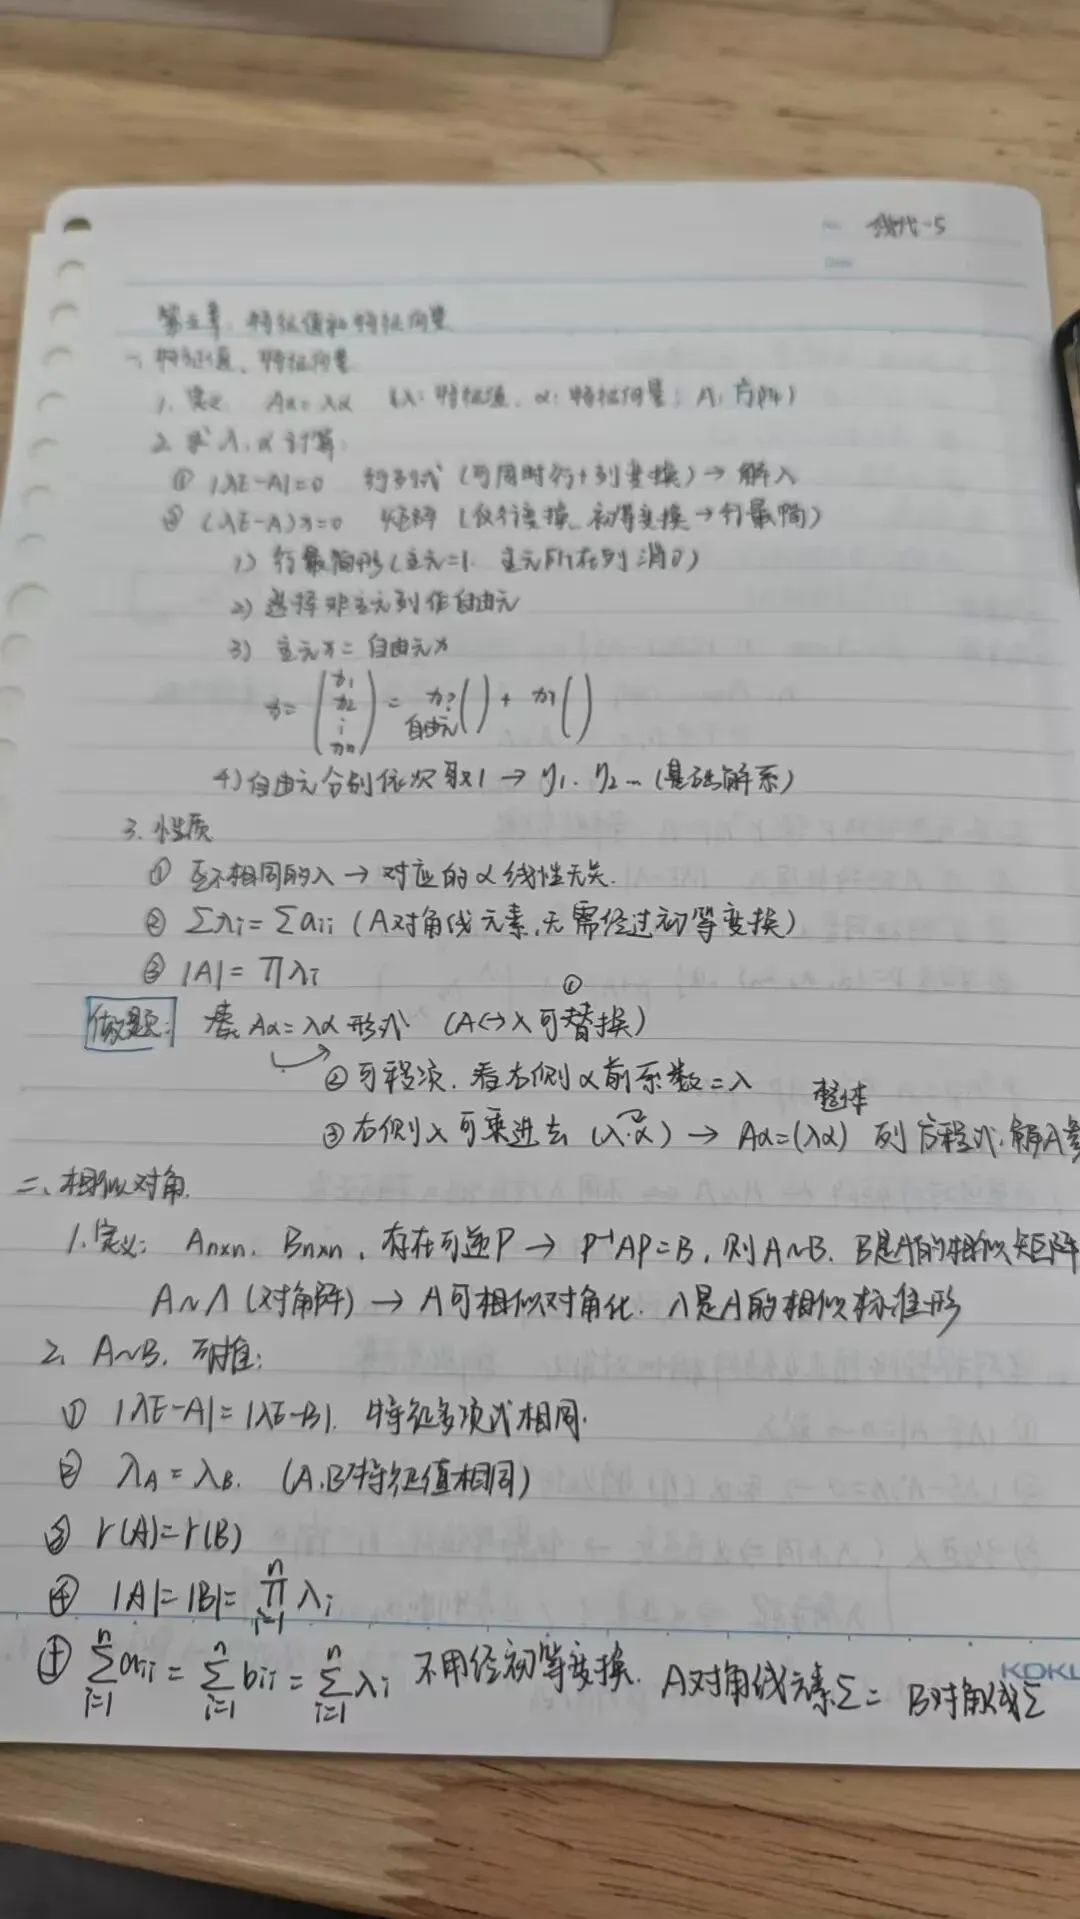 No. 线代-5
Date
第五章、特征值和特征向量
一、特征值、特征向量
1. 定义 Aα=λα (λ:特征值、α:特征向量; A:方阵)
2. 求λ、α计算:
① |λE-A|=0 行列式 (可同时行+列变换) → 解λ
② (λE-A)x=0 矩阵 (仅行变换、初等变换→行最简)
1) 行最简形(主元=1、主元所在列消0)
2) 选择非主元列作自由元
3) 主元x = 自由元x
x = (x1 x2 ⋮ xn) = x?( ) + x?( )
自由元
4) 自由元分别依次取1 → η1、η2 … (基础解系)
3. 性质
① 互不相同的λ → 对应的α线性无关.
② Σλi = Σaii (A对角线元素,无需经过初等变换)
③ |A| = Πλi
做题: 凑 Aα=λα 形式 (A↔λ可替换) ①
② 可移项、看右侧α前系数=λ
③ 右侧λ可乘进去 (λ·α) → Aα=(λα) 整体 列方程式,解A
二、相似对角
1. 定义: An×n、Bn×n, 存在可逆P → P⁻¹AP=B, 则A~B、B是A的相似矩阵
A~Λ (对角阵) → A可相似对角化、Λ是A的相似标准形
2. A~B, 可推:
① |λE-A|=|λE-B|、特征多项式相同.
② λA=λB. (A.B特征值相同)
③ r(A)=r(B)
④ |A|=|B|= ∏ⁿᵢ₌₁ λi
⑤ Σⁿᵢ₌₁ aii = Σⁿᵢ₌₁ bii = Σⁿᵢ₌₁ λi 不用经初等变换. A对角线元素Σ = B对角线Σ